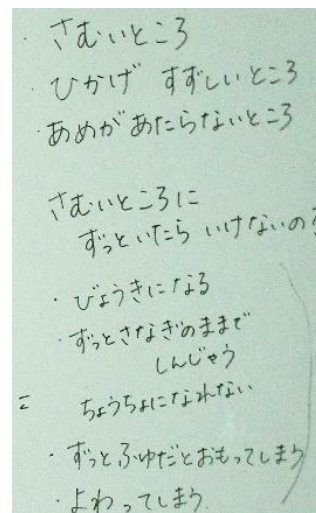 ・さむいところ
・ひかげ すずしいところ
・あめがあたらないところ
さむいところに
ずっといたら いけないの
・びょうきになる
・ずっとさなぎのままで
しんじゃう
= ちょうちょになれない
・ずっとふゆだとおもってしまう
・よわってしまう